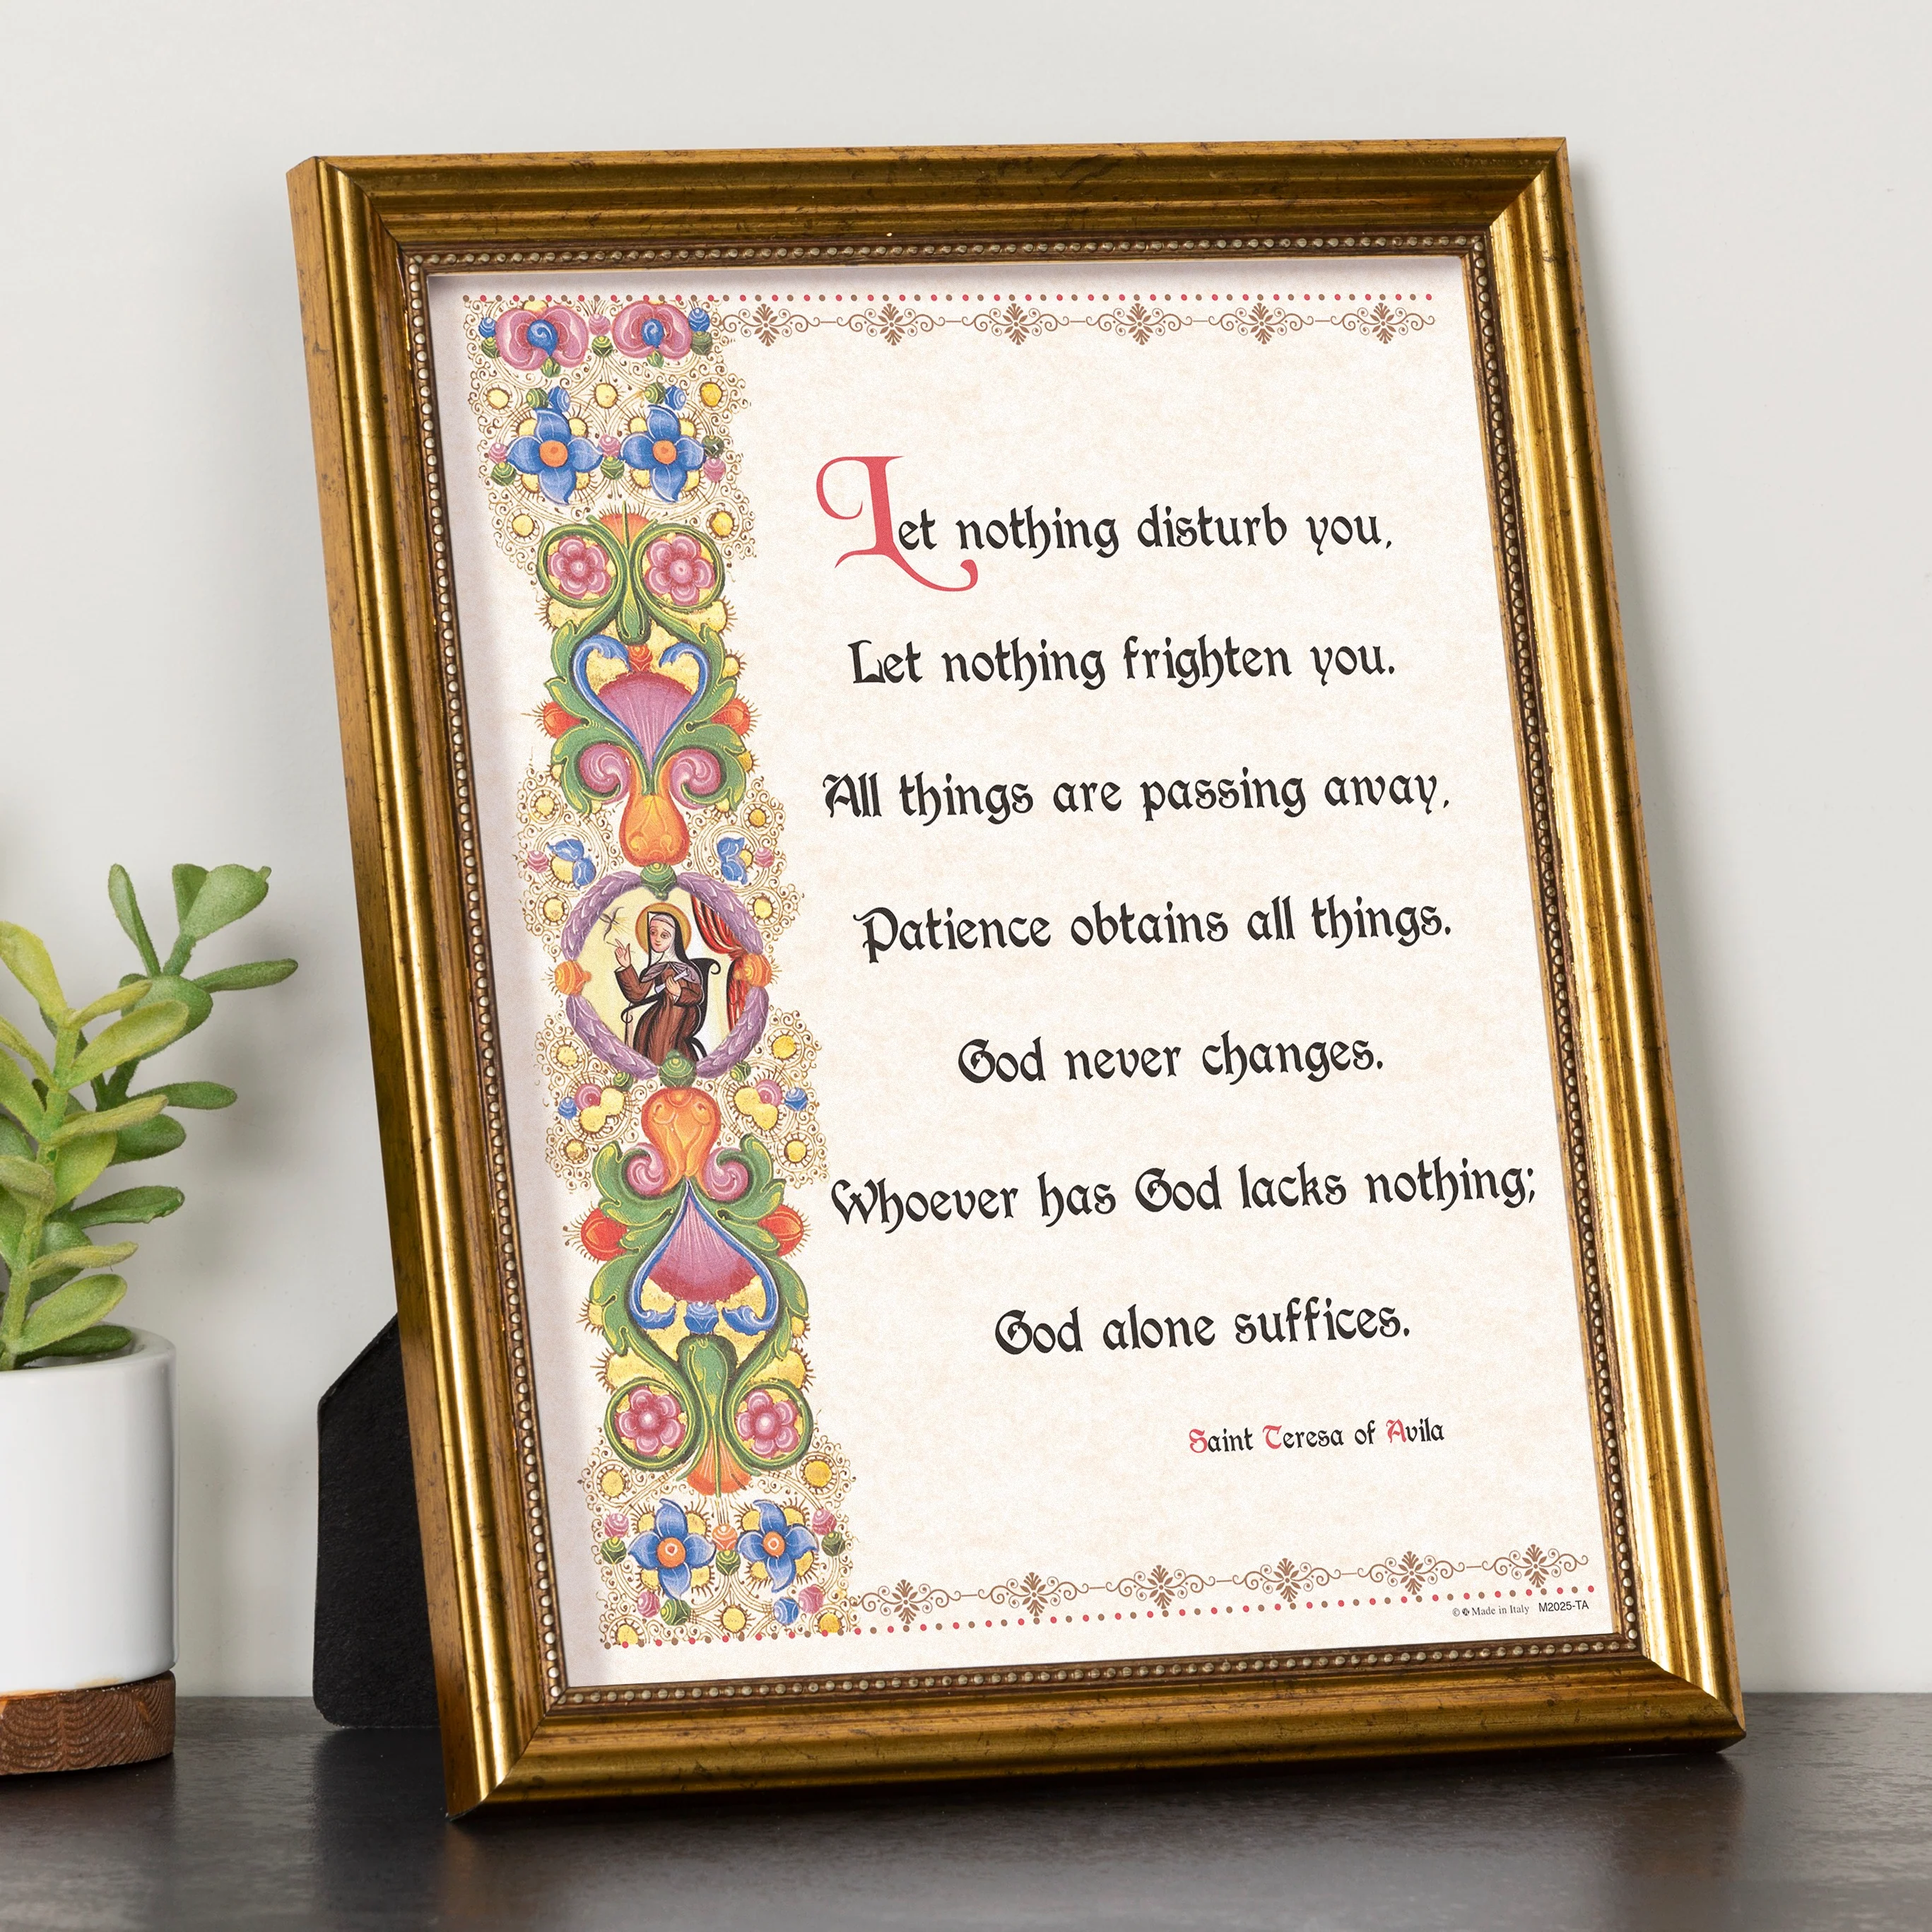 Let nothing disturb you,
Let nothing frighten you.
All things are passing away,
Patience obtains all things.
God never changes.
Whoever has God lacks nothing;
God alone suffices.
Saint Teresa of Avila
© Made in Italy M2025-TA